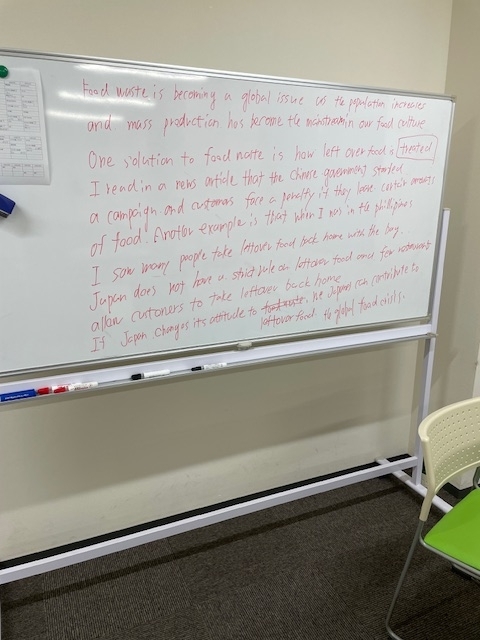 Food waste is becoming a global issue as the population increases
and mass production has become the mainstream in our food culture
One solution to food waste is how left over food is treated
I read in a news article that the Chinese government started
a campaign and customers face a penalty if they leave certain amounts
of food. Another example is that when I was in the philipines
I saw many people take leftover food back home with the bag.
Japan does not have a strict rule on leftover food and few restaurants
allow cutoners to take leftover back home
If Japan changes its attitude to food waste, we Japanes can contribute to
leftover food. the global food crisis.